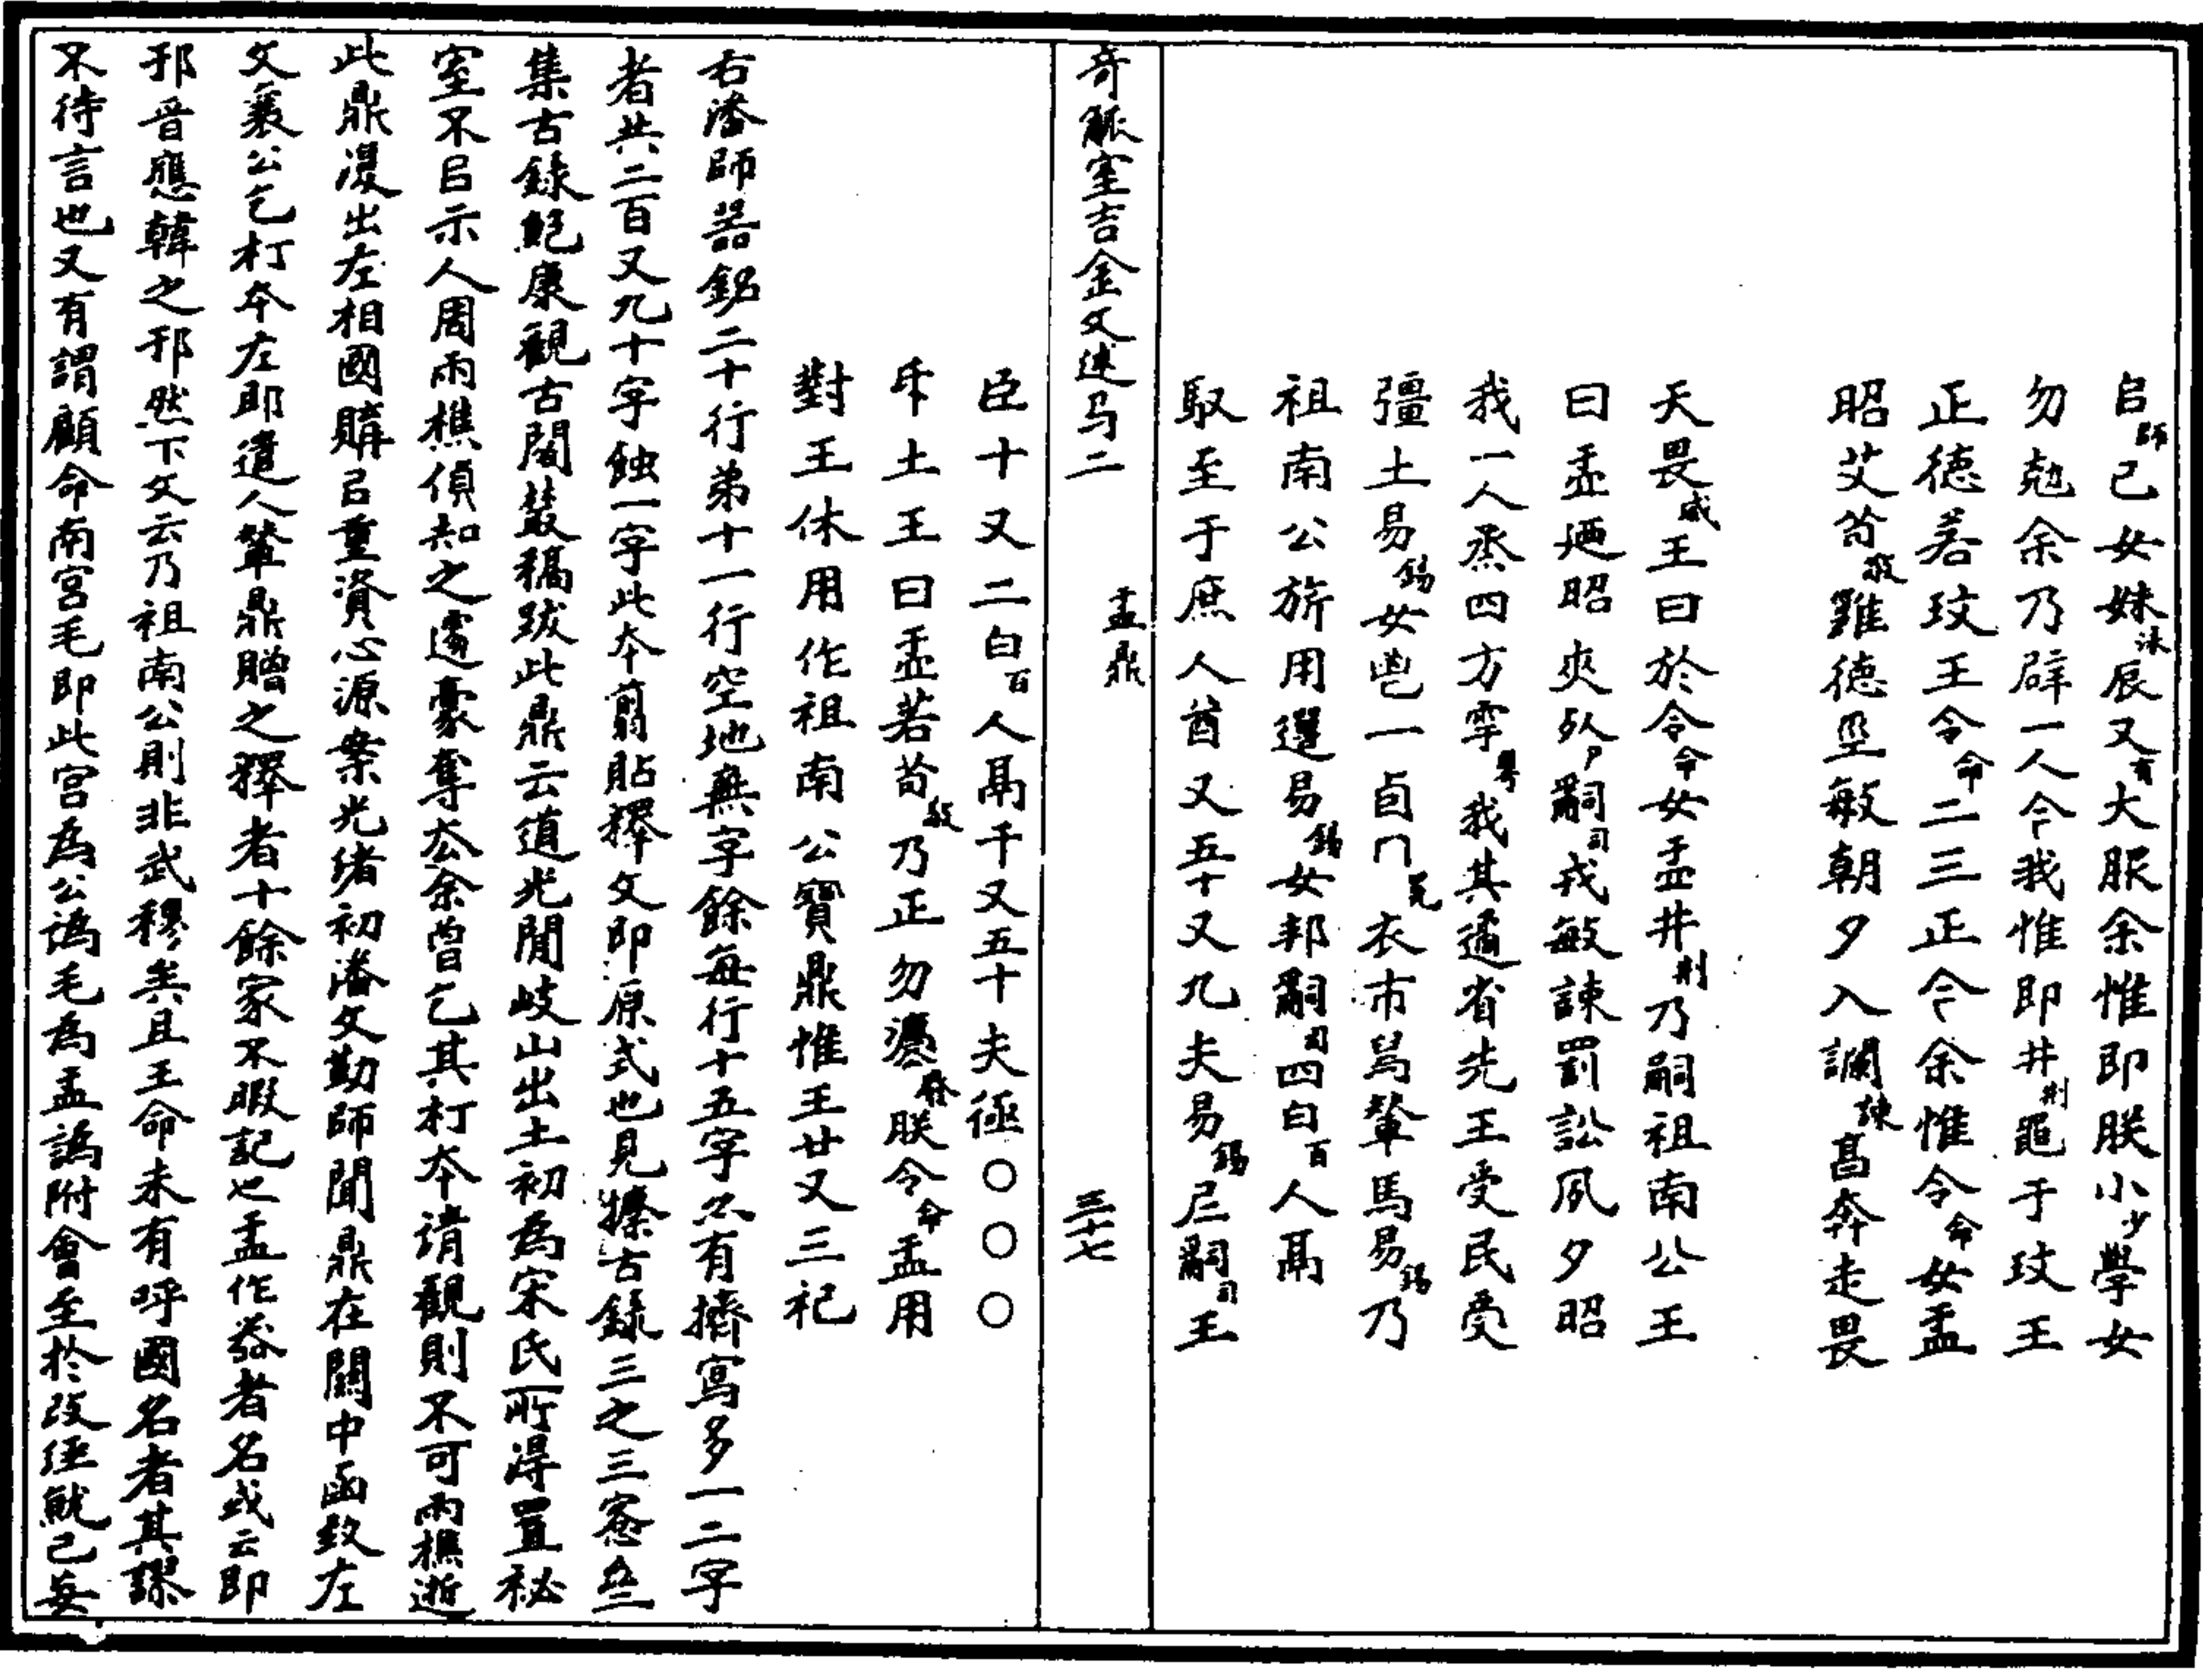 㠯師已女妹沬辰又有大服余惟即朕小少學女
勿勊余乃辟一人今我惟即井刑䙴于玟王
正德若玟王令命二三正今余惟令命女盂
昭艾苟敬雝德巠敏朝夕入讕諫亯奔走畏
天畏威王曰於令命女盂井刑乃嗣祖南公王
曰盂迺昭夾𣦵嗣司戎敏諫罰訟夙夕昭
我一人烝四方雩粵我其遹省先王受民受
彊土易錫女鬯一卣冂冕衣巿舄輦馬易錫乃
祖南公旂用遷易錫女邦嗣司四白百人鬲
馭至于庶人䣱又五十又九夫易錫尸嗣司王
奇觚室吉金文述𢎥二 盂鼎 三十七
臣十又二白百人鬲千又五十夫徑○○○
氒土王曰盂若苟敬乃正勿灋廢朕令命盂用
對王休用作祖南公寶鼎惟王廿又三祀
右潘師器銘二十行弟十一行空地無字餘每行十五字亦有擠寫多一二字
者共二百又九十字蝕一字此本翦貼釋文即原式也見攈古錄三之三愙齋
集古錄鮑康觀古閣叢稿跋此鼎云道光間岐山出土初為宋氏所得置祕
室不㠯示人周雨樵偵知之遽豪奪去余曾乞其打本請觀則不可雨樵逝
此鼎復出左相國購㠯重資心源案光緒初潘文勤師聞鼎在關中函致左
文襄公乞打本左即遣人輦鼎贈之釋者十餘家不暇記也盂作器者名或云即
邘晉應韓之邘然下文云乃祖南公則非武穆矣且王命未有呼國名者其謬
不待言也又有謂顧命南宮毛即此宮為公譌毛為盂譌附會至於改經觥已妄